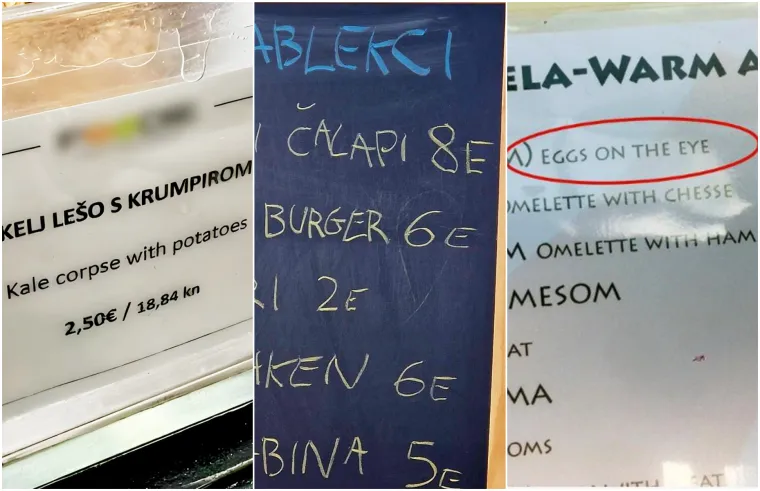 KELJ LEŠO S KRUMPIROM
Kale corpse with potatoes
2,50€ / 18,84 kn
ABLEKCI
I ČALAPI 8E
BURGER 6E
RI 2E
KEN 6E
BINA 5E
ELA-WARM A
M) EGGS ON THE EYE
OMELETTE WITH CHESSE
M OMELETTE WITH HAM
MESOM
AT
MA
OMS